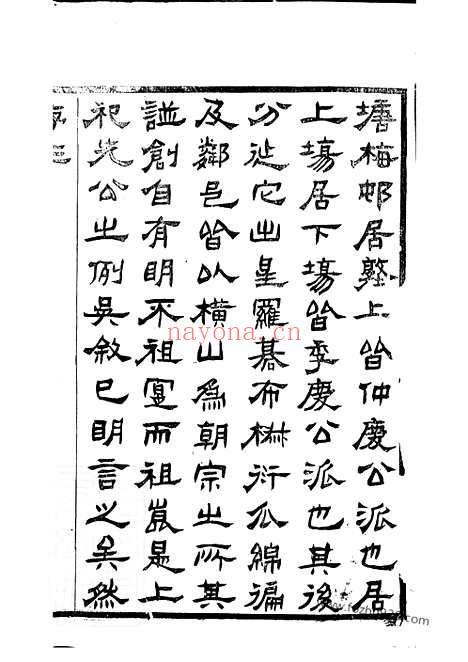 塘梅邨居墅上皆仲慶公派也居
上塲居下塲皆季慶公派也其後
分迆它出星羅碁布楙衍瓜綿徧
及鄰邑皆以橫山爲朝宗之所其
諡創自有明不祖寔而祖崑是上
祀先公之例吳敘已明言之矣然
nayona.cn